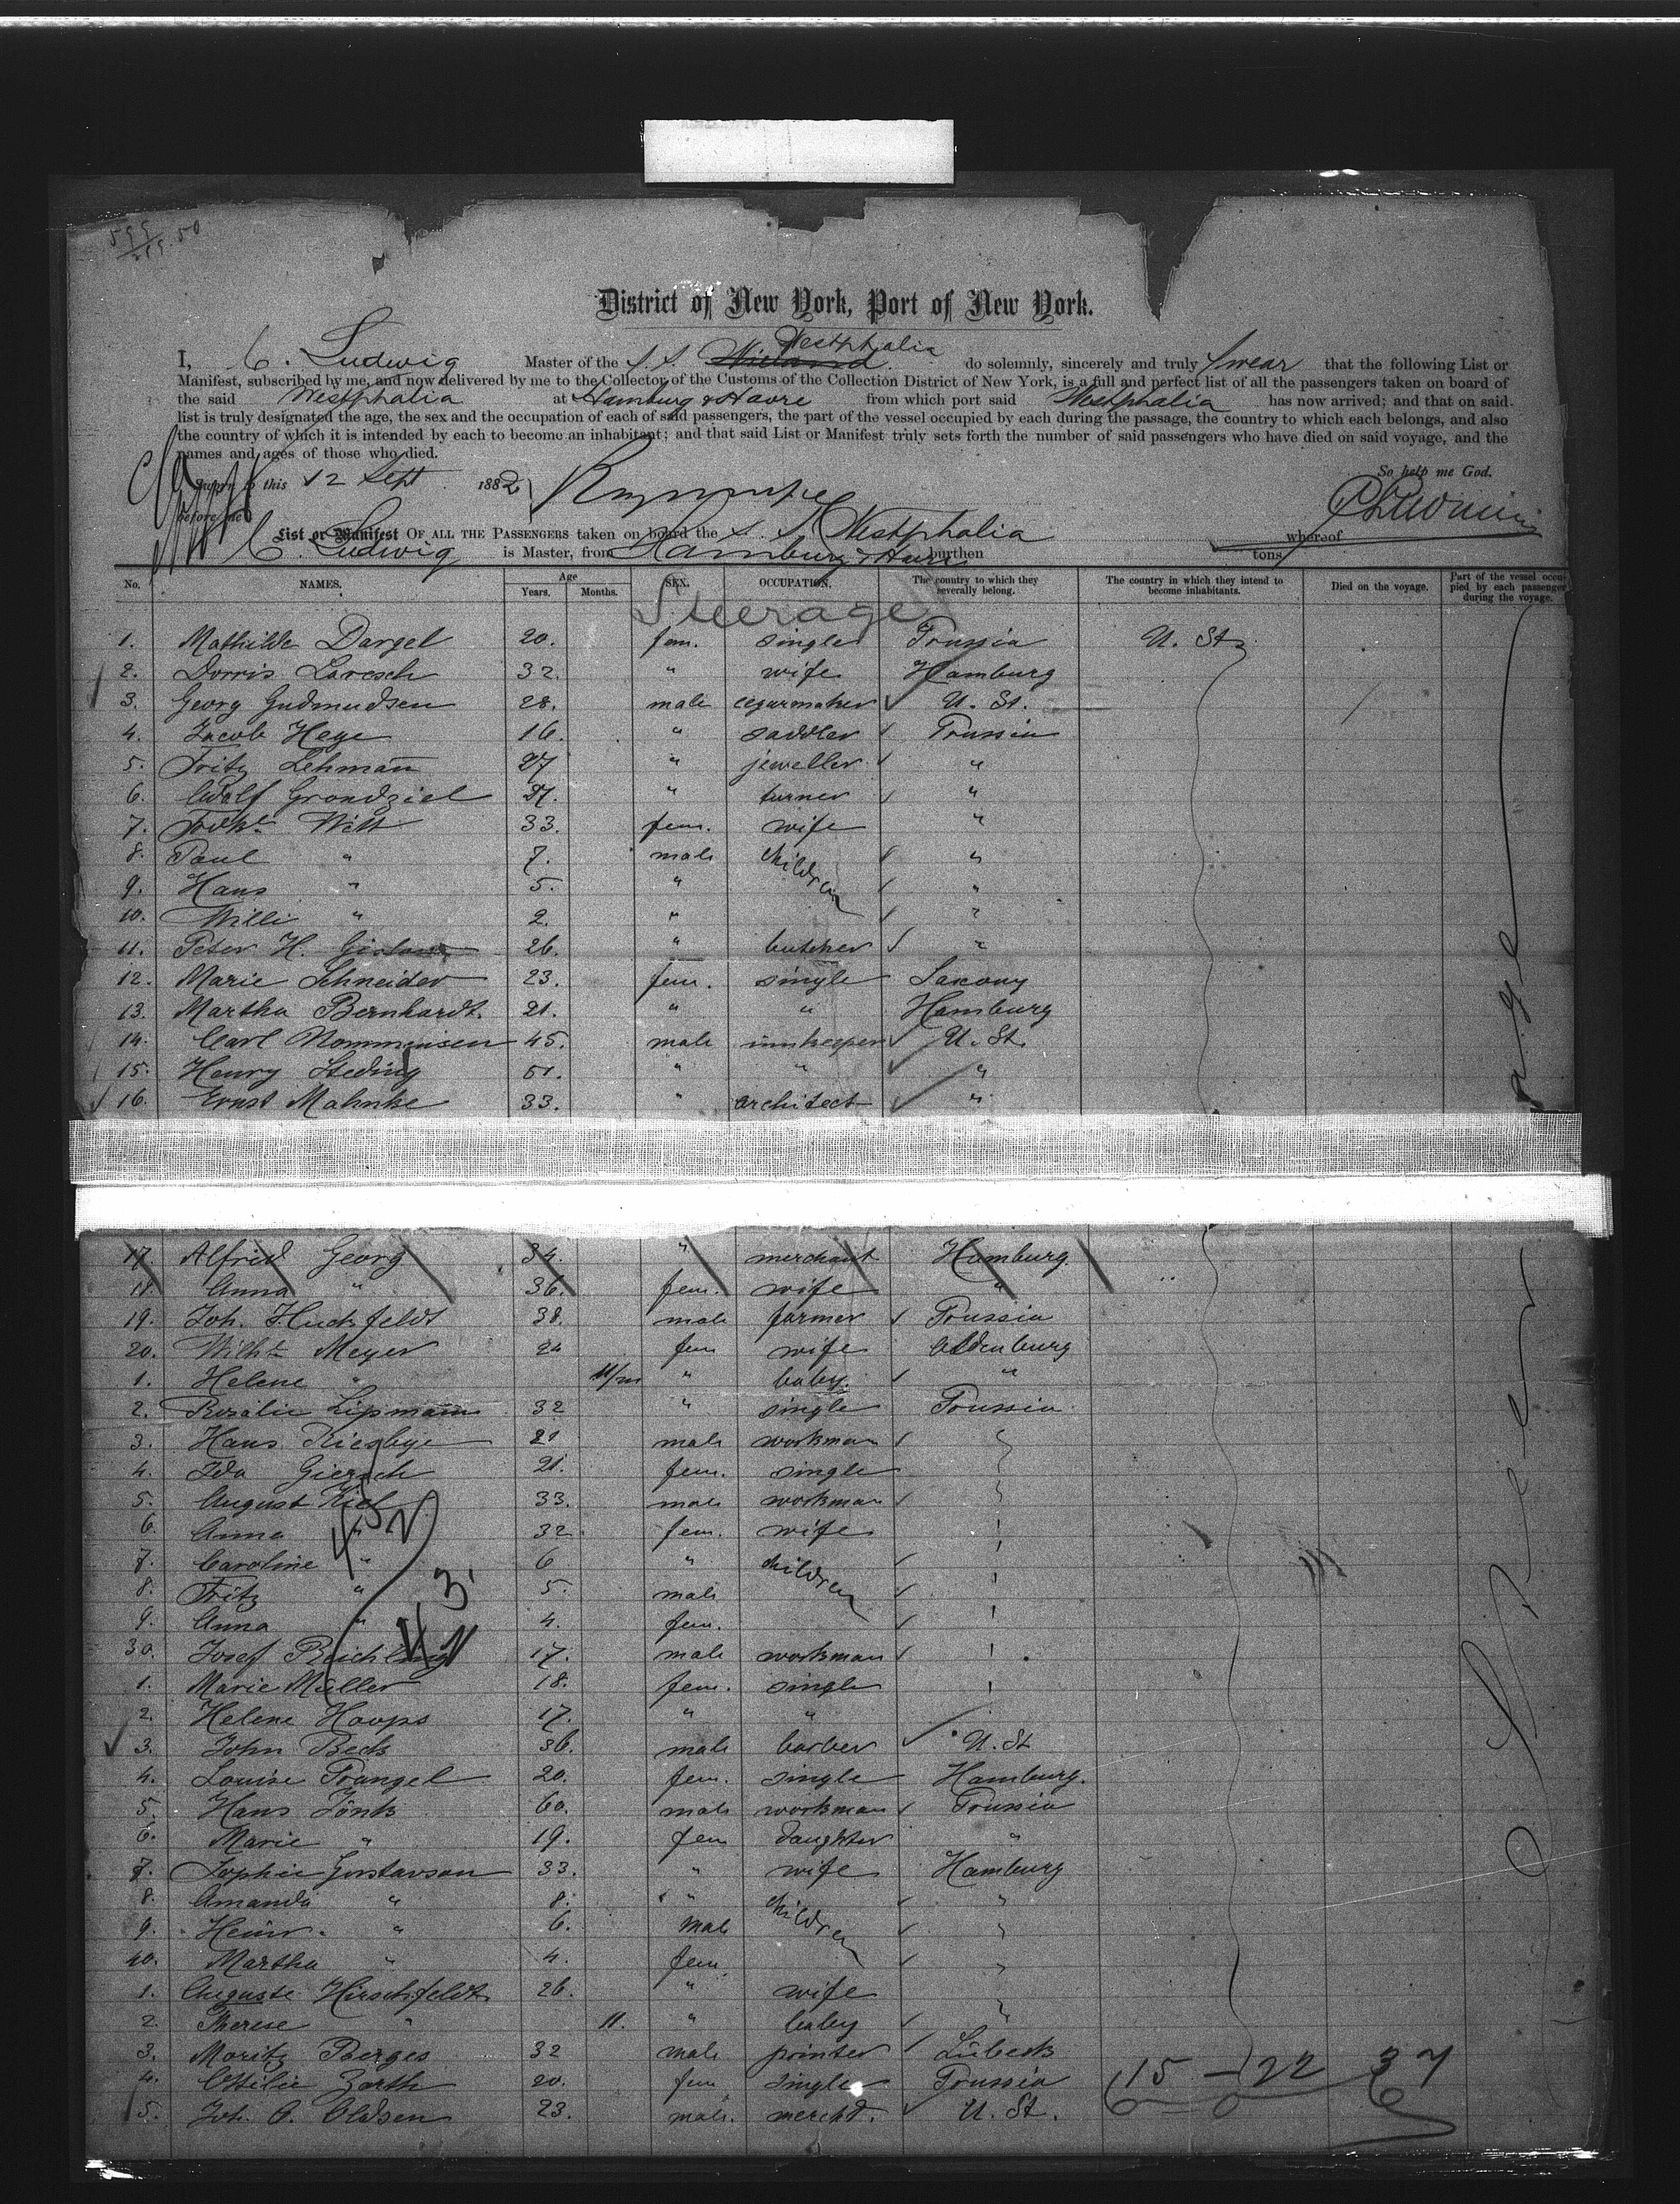 District of New York, Port of New York.
I, C. Ludwig Master of the S. S. Westphalia do solemnly, sincerely and truly Swear that the following List or
Manifest, subscribed by me, and now delivered by me to the Collector of the Customs of the Collection District of New York, is a full and perfect list of all the passengers taken on board of
the said Westphalia at Hamburg & Havre from which port said Westphalia has now arrived; and that on said
list is truly designated the age, the sex and the occupation of each of said passengers, the part of the vessel occupied by each during the passage, the country to which each belongs, and also
the country of which it is intended by each to become an inhabitant; and that said List or Manifest truly sets forth the number of said passengers who have died on said voyage, and the
names and ages of those who died.
So help me God.
Sworn to this 12 Sept 1882
before me
List or Manifest OF ALL THE PASSENGERS taken on board the S. S. Westphalia whereof
C. Ludwig is Master, from Hamburg & Havre burthen tons
No. NAMES. Age Years. Months. SEX. OCCUPATION. The country to which they severally belong. The country in which they intend to become inhabitants. Died on the voyage. Part of the vessel occupied by each passenger during the voyage.
Steerage
1. Mathilde Dargel 20. fem. single Prussia U. St.
2. Dorris Laresch 32. " wife Hamburg
3. Georg Gudmudsen 28. male cegarmaker U. St.
4. Jacob Heye 16. " saddler Prussia
5. Fritz Lehmann 27 " jeweller "
6. Adolf Grondziel 27. " turner "
7. Witt 33. fem. wife "
8. Paul " 7. male children "
9. Hans " 5. " "
10. Willi " 2. " "
11. Peter H. 26. " butcher "
12. Marie Schneider 23. fem. single Saxony
13. Martha Bernhardt. 21. " " Hamburg
14. Carl Mommensen 45. male innkeeper U. St.
15. Henry Steding 51. " " "
16. Ernst Mahnke 33. " architect "
17. Alfred Georg 34. " merchant Hamburg.
18. Anna " 36. fem. wife "
19. Joh. Huckfeldt 38. male farmer Prussia
20. Wilh. Meyer 24 fem wife Oldenburg
1. Helene " 11/m " baby. "
2. Rosalie Lipmann 32 " single Prussia
3. Hans Riesbye 21 male workman
4. Ida Giersch 21. fem. single
5. August Kiel 33. male workman
6. Anna " 32. fem. wife
7. Caroline " 6 " children
8. Fritz " 5. male
9. Anna " 4. fem.
30. Josef Reichling 17. male workman
1. Marie Müller 18. fem. single
2. Helene Hoops 17. " "
3. John Beck 36. male barber U. St
4. Louise Prangel 20. fem. single Hamburg.
5. Hans Jönk 60. male workman Prussia
6. Marie " 19. fem daughter "
7. Sophie Gustavson 33. " wife Hamburg
8. Amanda " 8. " children "
9. Heinr. " 6. male "
40. Martha " 4. fem. "
1. Auguste Hirschfeldt 26. " wife "
2. Therese " 11. " baby
3. Moritz Berges 32 male printer Lübeck
4. Ottilie Zarth 20. fem single Prussia
5. Joh. O. Oldsen 23. male. merchd. U. St.
15 – 22 37